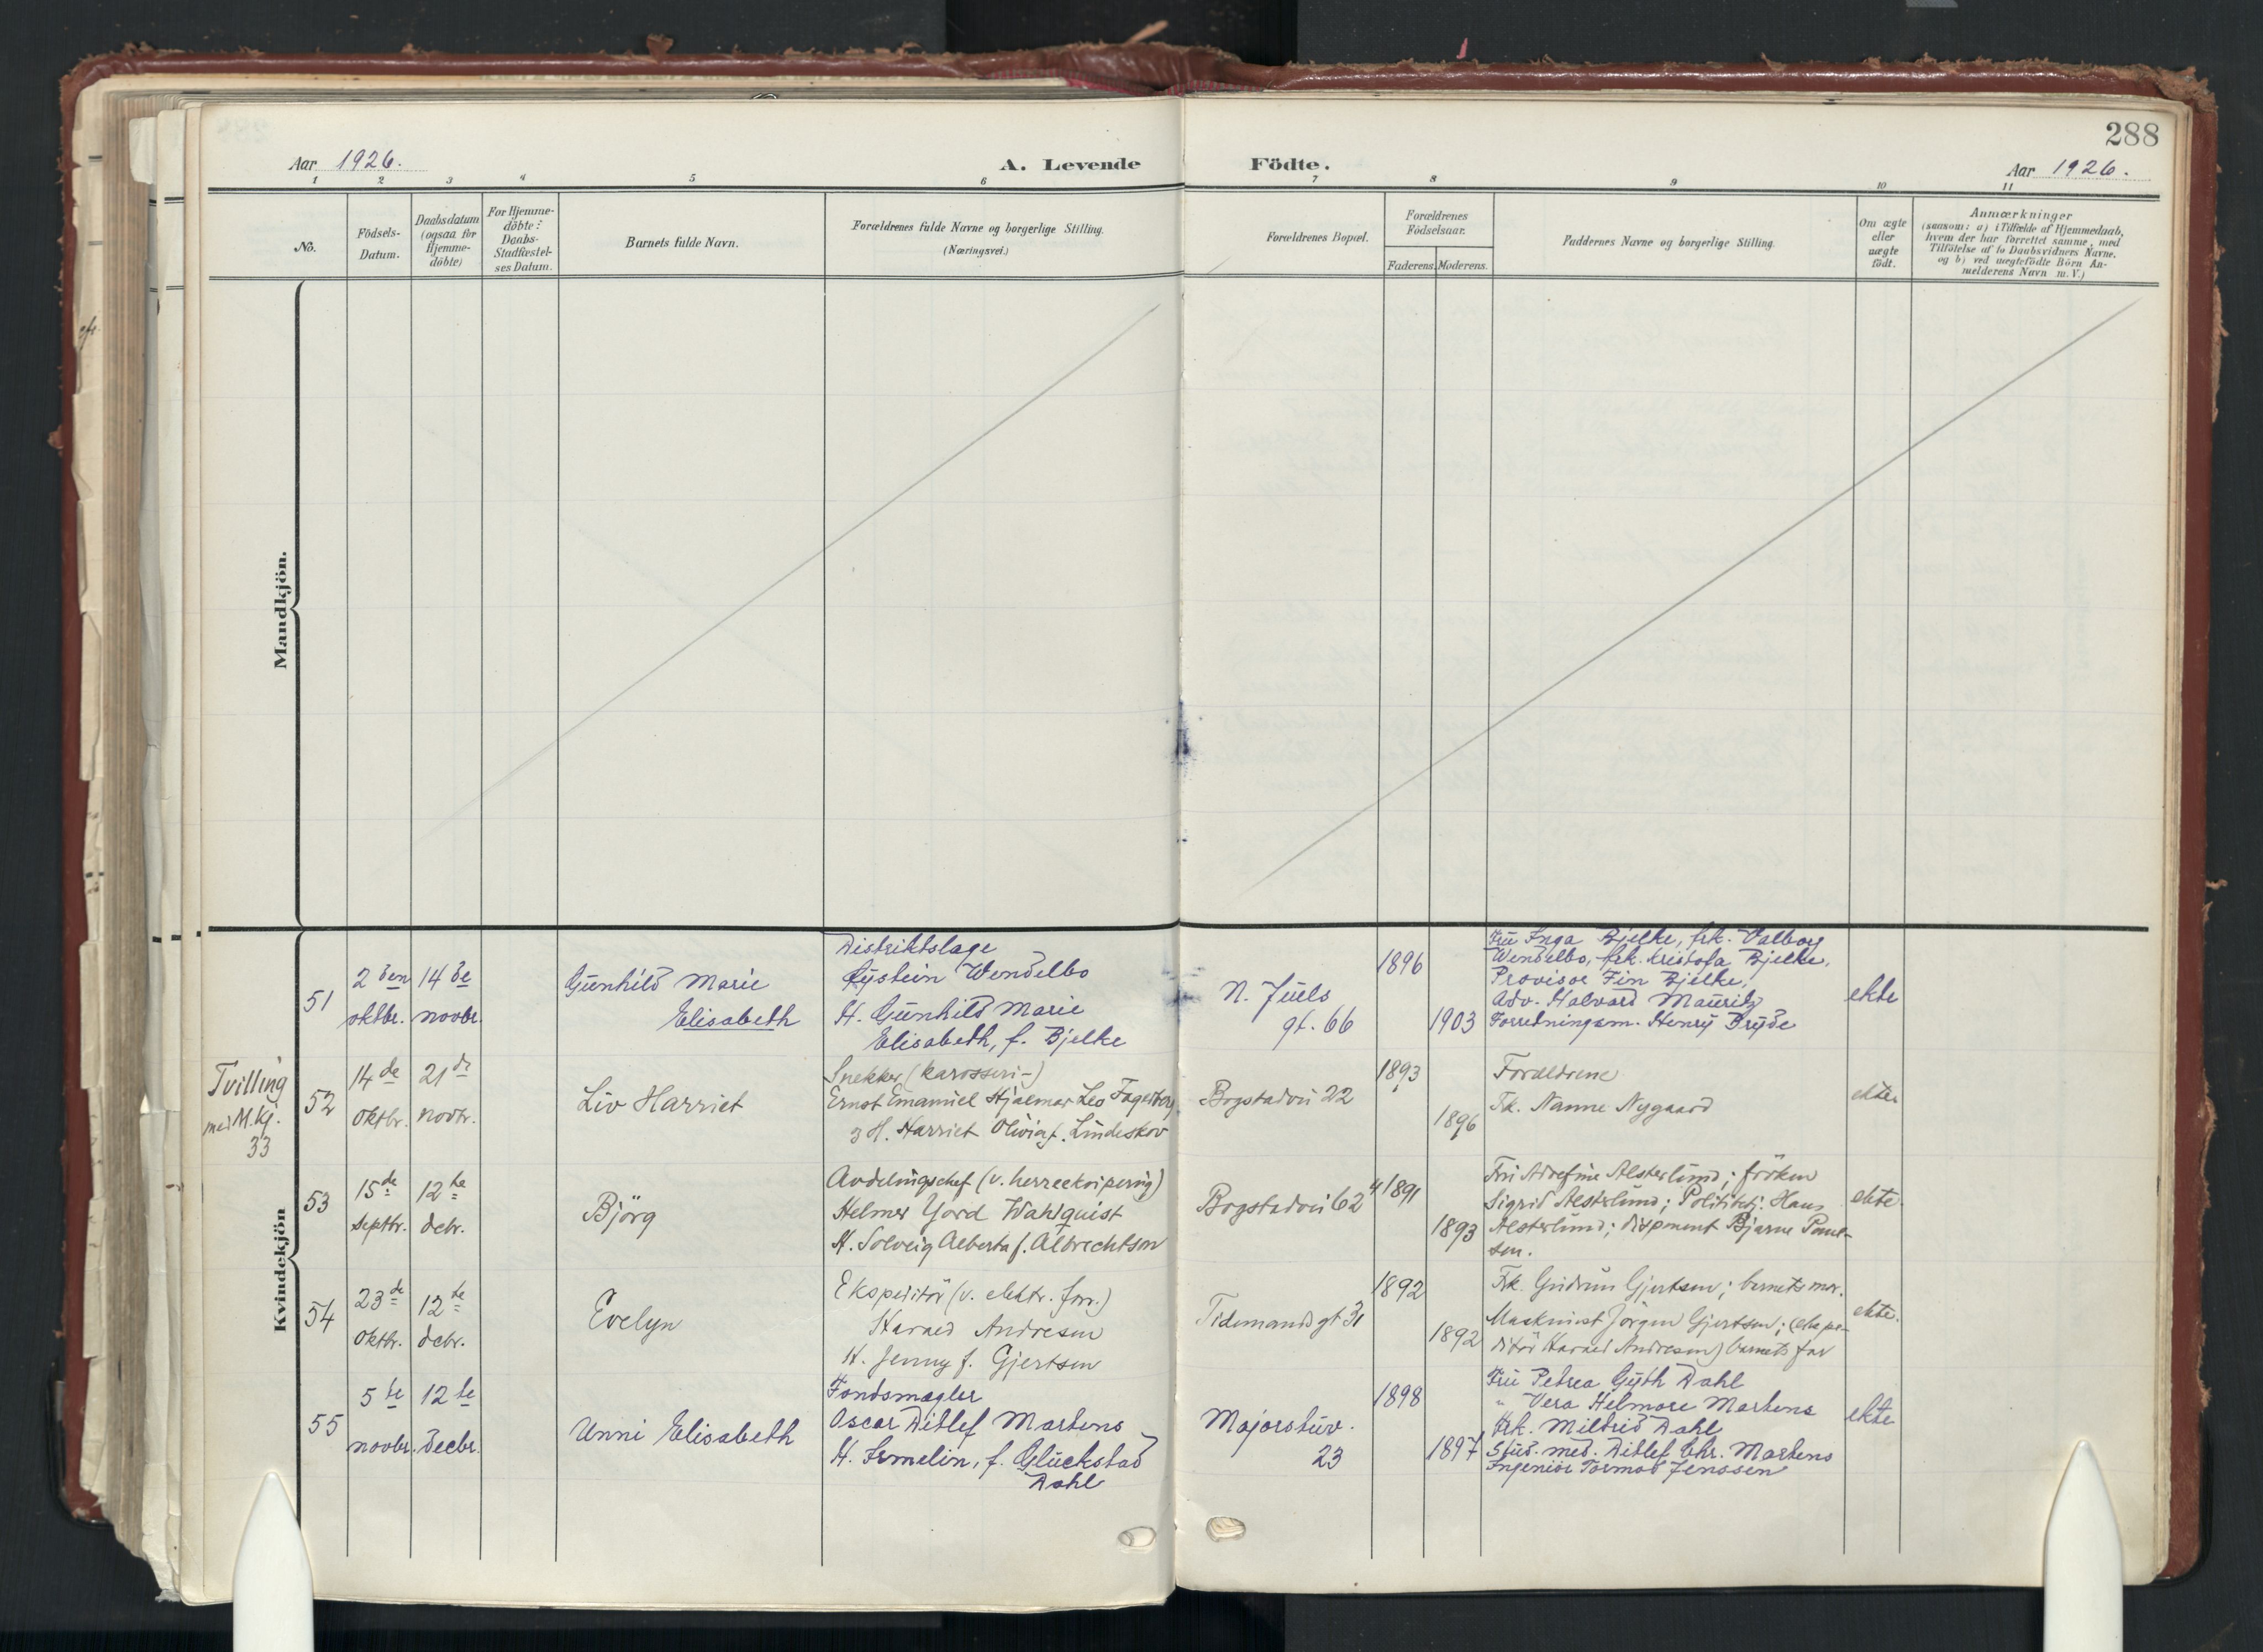 288
Aar 1926.
A. Levende Födte.
Aar 1926.
1 2 3 4 5 6 7 8 9 10 11
No.
Födsels-
Datum.
Daabsdatum
(ogsaa for
Hjemme-
döbte)
For Hjemme-
döbte:
Daabs-
Stadfæstel-
ses Datum.
Barnets fulde Navn.
Forældrenes fulde Navne og borgerlige Stilling.
(Næringsvei.)
Forældrenes Bopæl.
Forældrenes
Födselsaar.
Faderens. Moderens.
Faddernes Navne og borgerlige Stilling.
Om ægte
eller
uægte
födt.
Anmærkninger
(saasom: a) i Tilfælde af Hjemmedaab,
hvem der har forrettet samme, med
Tilföielse af to Daabsvidners Navne.
og b) ved uægtefödte Börn An-
melderens Navn m. V.)
Mandkjön.
Kvindekjön
51
2den
oktbr.
14de
novbr.
Gunhild Marie
Elisabeth
Distriktslæge
Eystein Wendelbo
H. Gunhild Marie
Elisabeth, f. Bjelke
N. Juels
gt. 66
1896
1903
Fru Inga Bjelke, frk. Valborg
Wendelbo, frk. Kristofa Bjelke,
Provisor Fin Bjelke,
Adv. Halvard Mauritz
Forretningsm. Henry Bryde
ekte
Tvilling
med M.Kj.
33
52
14de
oktbr.
21de
novbr.
Liv Harriet
Snekker (karosseri-)
Ernst Emanuel Hjalmar Leo Fagerberg
H. Harriet Olivia f. Lindeskov
Bogstadvei 22
1893
1896
Foreldrene
Fk. Nanne Nygaard
ekte
53
15de
septbr.
12te
debr.
Björg
Avdelingschef (v. herreekvipering)
Helmer Gord Wahlquist
H. Solveig Alberta f. Albrechtson
Bogstadvei 62
1891
1893
Sigrid Alsterlund; Hans
Alsterlund; disponent Bjarne Poul-
sen.
ekte.
54
23de
oktbr.
12te
debr.
Evelyn
Ekspeditör (v. elektr. forr.)
Harald Andresen
H. Jenny f. Gjertsen
Tidemandsgt 31
1892
1892
Frk. Gudrun Gjertsen; barnets mor.
Maskinist Jörgen Gjertsen; (ekspe-
ditör Harald Andresen) barnets far
ekte.
55
5te
novbr.
12te
decbr.
Anni Elisabeth
Fondsmægler
Oscar Ditlef Martens
H. Irmelin, f. Glückstad
Dahl
Majorstuv.
23
1898
1897
Fru Petrea Gyth Dahl
" Vera Helmore Martens
Frk. Mildrid Dahl
Stud. med. Ditlef Chr. Martens
Ingeniör Tormod Jenssen
ekte